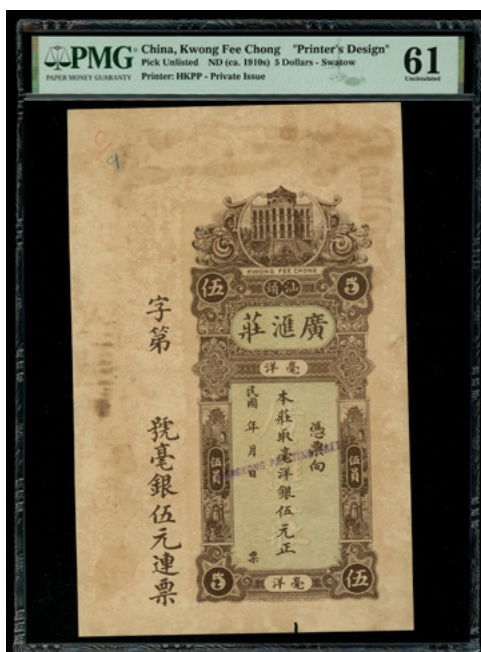 PMG
PAPER MONEY GUARANTY
China, Kwong Fee Chong "Printer's Design"
Pick Unlisted ND (ca. 1910s) 5 Dollars - Swatow
Printer: HKPP - Private Issue
61
Uncirculated
KWONG FEE CHONG
伍 汕頭 5
廣滙莊
毫洋
憑票向
本莊取毫洋銀伍元正
民國 年 月 日 票
伍員
伍員
5 毫洋 伍
字第 號毫銀伍元連票